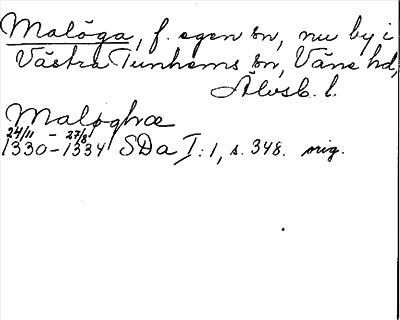 Malöga, f. egen sn, nu by i
Västra Tunhems sn, Väne hd,
Älvsb. l.
Maløghæ
24/11 - 27/8
1330-1334 SDa I:1, s. 348. orig.